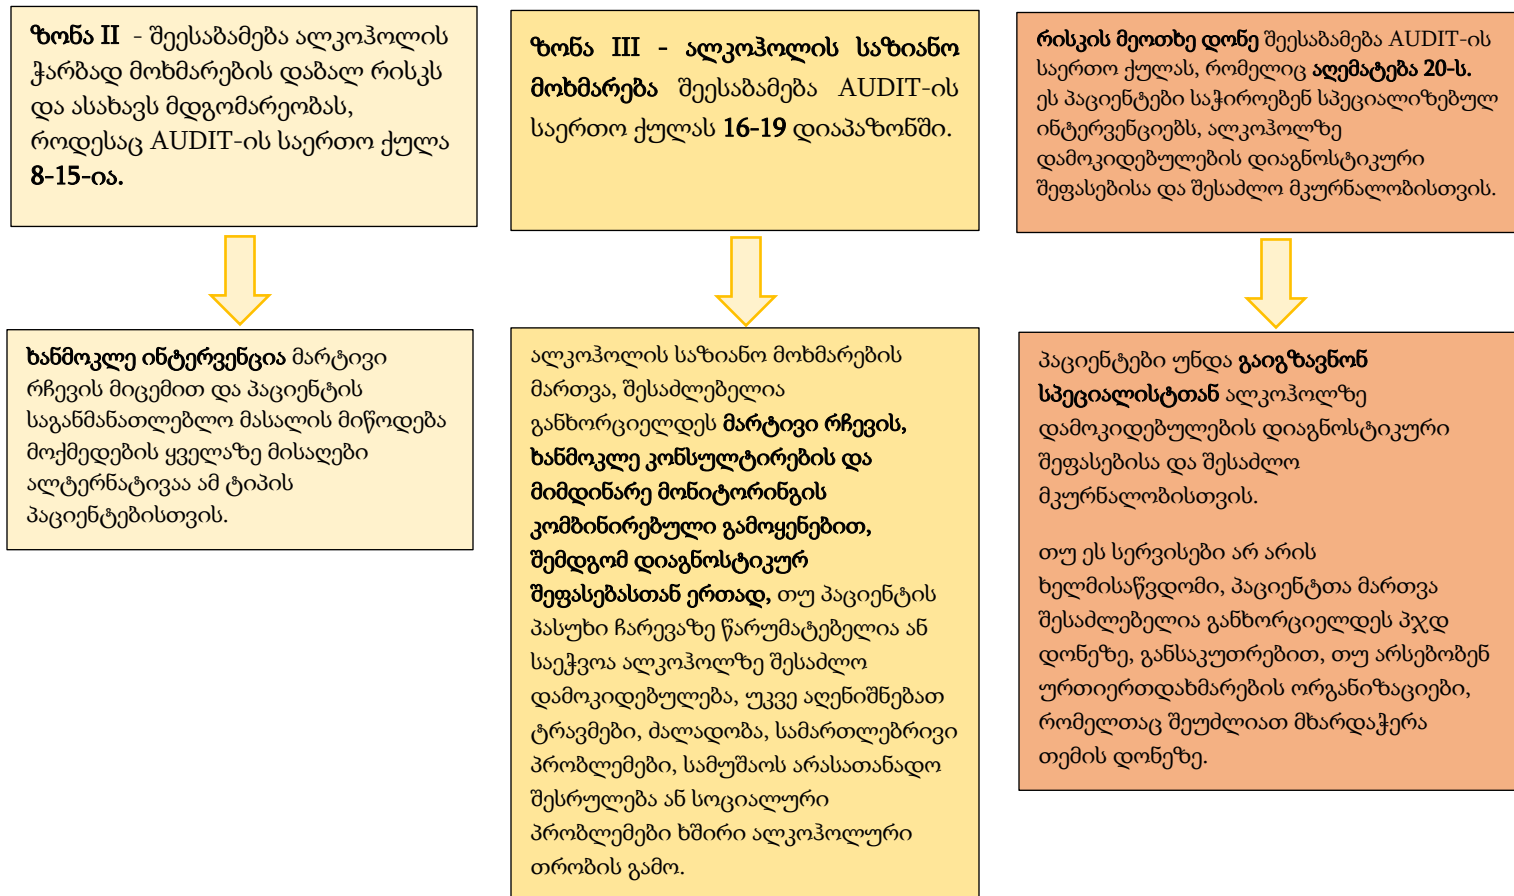 ზონა II - შეესაბამება ალკოჰოლის
ჭარბად მოხმარების დაბალ რისკს
და ასახავს მდგომარეობას,
როდესაც AUDIT-ის საერთო ქულა
8-15-ია.
ხანმოკლე ინტერვენცია მარტივი
რჩევის მიცემით და პაციენტის
საგანმანათლებლო მასალის მიწოდება
მოქმედების ყველაზე მისაღები
ალტერნატივაა ამ ტიპის
პაციენტებისთვის.
ზონა III - ალკოჰოლის საზიანო
მოხმარება შეესაბამება AUDIT-ის
საერთო ქულას 16-19 დიაპაზონში.
ალკოჰოლის საზიანო მოხმარების
მართვა, შესაძლებელია
განხორციელდეს მარტივი რჩევის,
ხანმოკლე კონსულტირების და
მიმდინარე მონიტორინგის
კომბინირებული გამოყენებით,
შემდგომ დიაგნოსტიკურ
შეფასებასთან ერთად, თუ პაციენტის
პასუხი ჩარევაზე წარუმატებელია ან
საეჭვოა ალკოჰოლზე შესაძლო
დამოკიდებულება, უკვე აღენიშნებათ
ტრავმები, ძალადობა, სამართლებრივი
პრობლემები, სამუშაოს არასათანადო
შესრულება ან სოციალური
პრობლემები ხშირი ალკოჰოლური
თრობის გამო.
რისკის მეოთხე დონე შეესაბამება AUDIT-ის
საერთო ქულას, რომელიც აღემატება 20-ს.
ეს პაციენტები საჭიროებენ სპეციალიზებულ
ინტერვენციებს, ალკოჰოლზე
დამოკიდებულების დიაგნოსტიკური
შეფასებისა და შესაძლო მკურნალობისთვის.
პაციენტები უნდა გაიგზავნონ
სპეციალისტთან ალკოჰოლზე
დამოკიდებულების დიაგნოსტიკური
შეფასებისა და შესაძლო
მკურნალობისთვის.
თუ ეს სერვისები არ არის
ხელმისაწვდომი, პაციენტთა მართვა
შესაძლებელია განხორციელდეს პჯდ
დონეზე, განსაკუთრებით, თუ არსებობენ
ურთიერთდახმარების ორგანიზაციები,
რომელთაც შეუძლიათ მხარდაჭერა
თემის დონეზე.